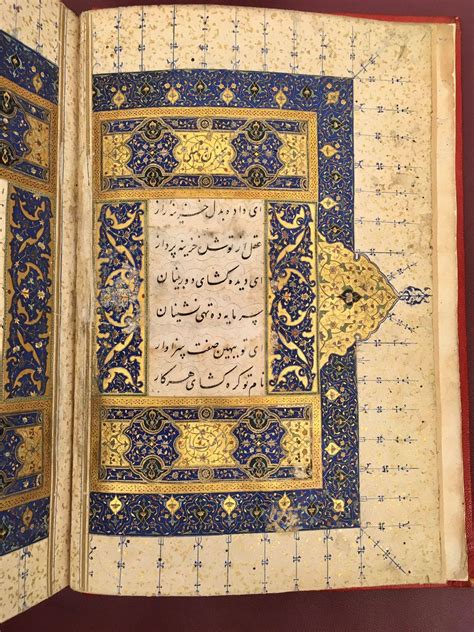 ای داده بدل خزینه راز
عقل از تو شده خزینه پرداز
ای دیده کشای دوربینان
سرمایه ده تهی نشینان
ای تو ببهین صفت سزاوار
نام تو کره کشای هر کار